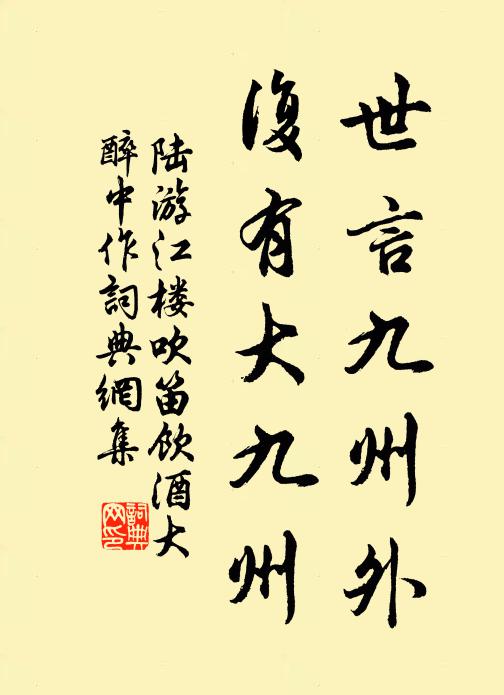 世言九州外
復有大九州
陆游江楼吹笛饮酒大
醉中作詞典網集
詞典
网印